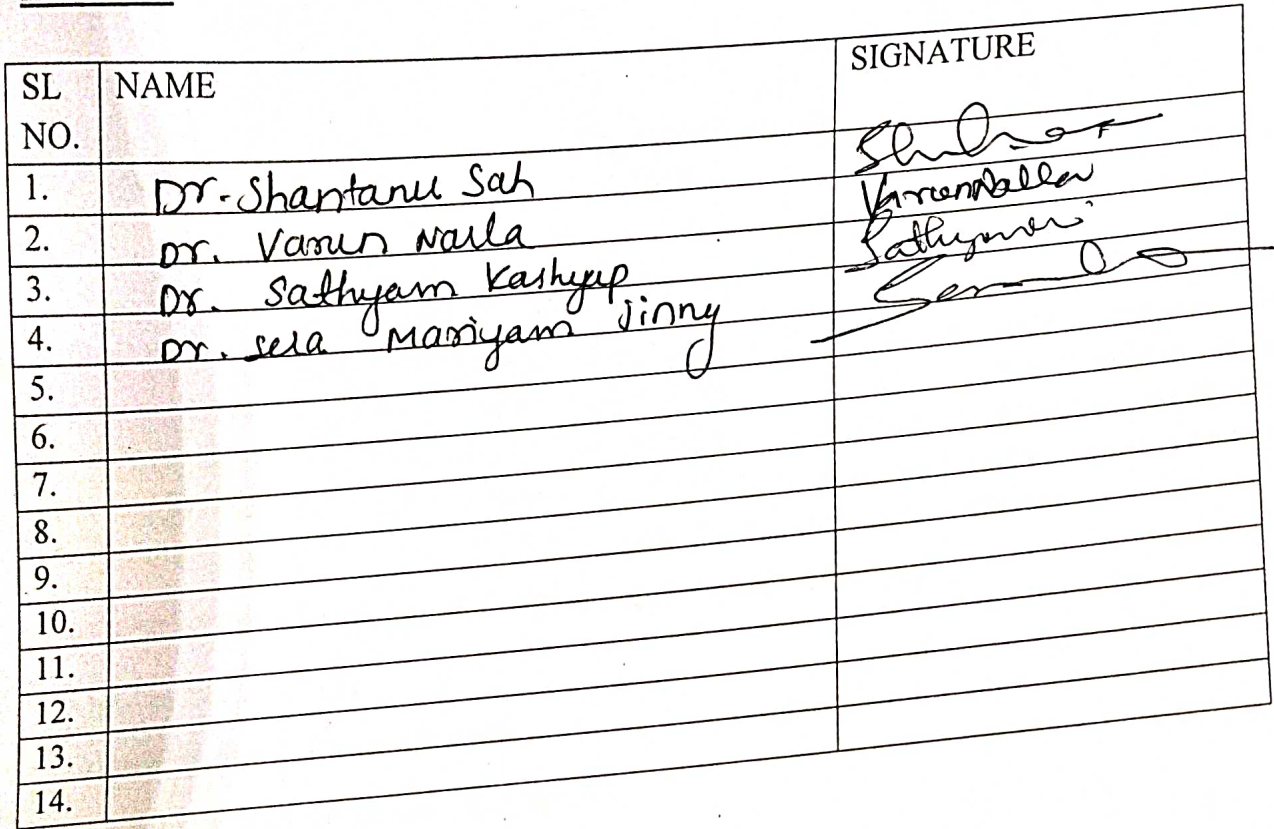 SL NO. NAME SIGNATURE
1. Dr. Shantanu Sah
2. Dr. Varun Nalla VarunNalla
3. Dr. Sathyam Kashyap
4. Dr. Sera Mariyam Jinny
5.
6.
7.
8.
9.
10.
11.
12.
13.
14.